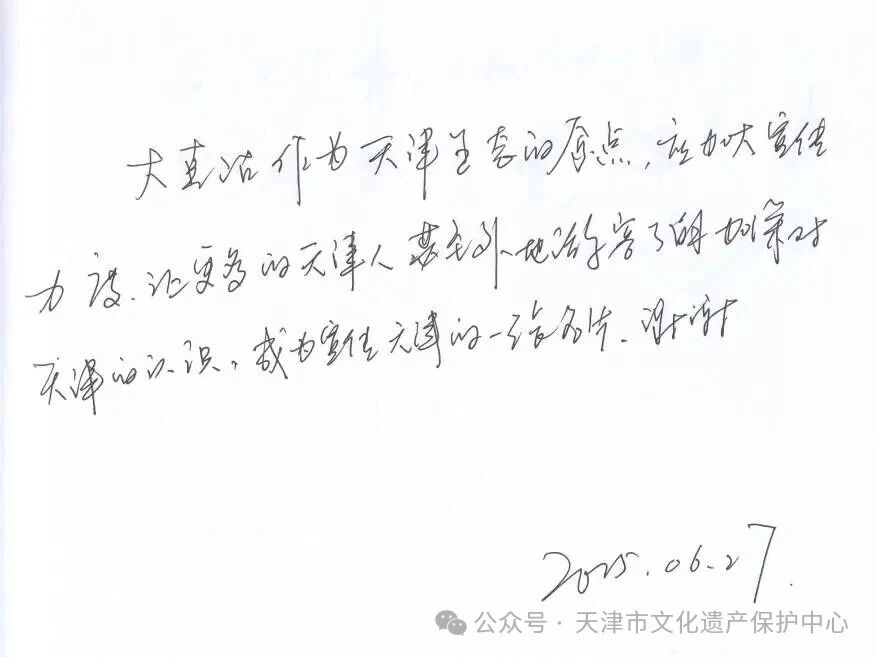 大直沽作为天津生长的原点，应加大宣传
力度、让更多的天津人甚至外地游客了解加深对
天津的认识，成为宣传天津的一张名片、谢谢
2025.06.27.
公众号·天津市文化遗产保护中心